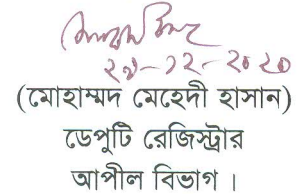 ২৯-১২-২০২০
(মোহাম্মদ মেহেদী হাসান)
ডেপুটি রেজিস্ট্রার
আপীল বিভাগ ।